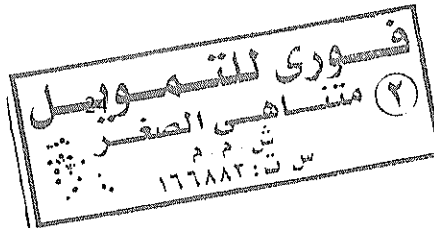 فوري للتمويل
٢ متناهي الصغر
ش . م . م
س ت : ١٦٦٨٨٢